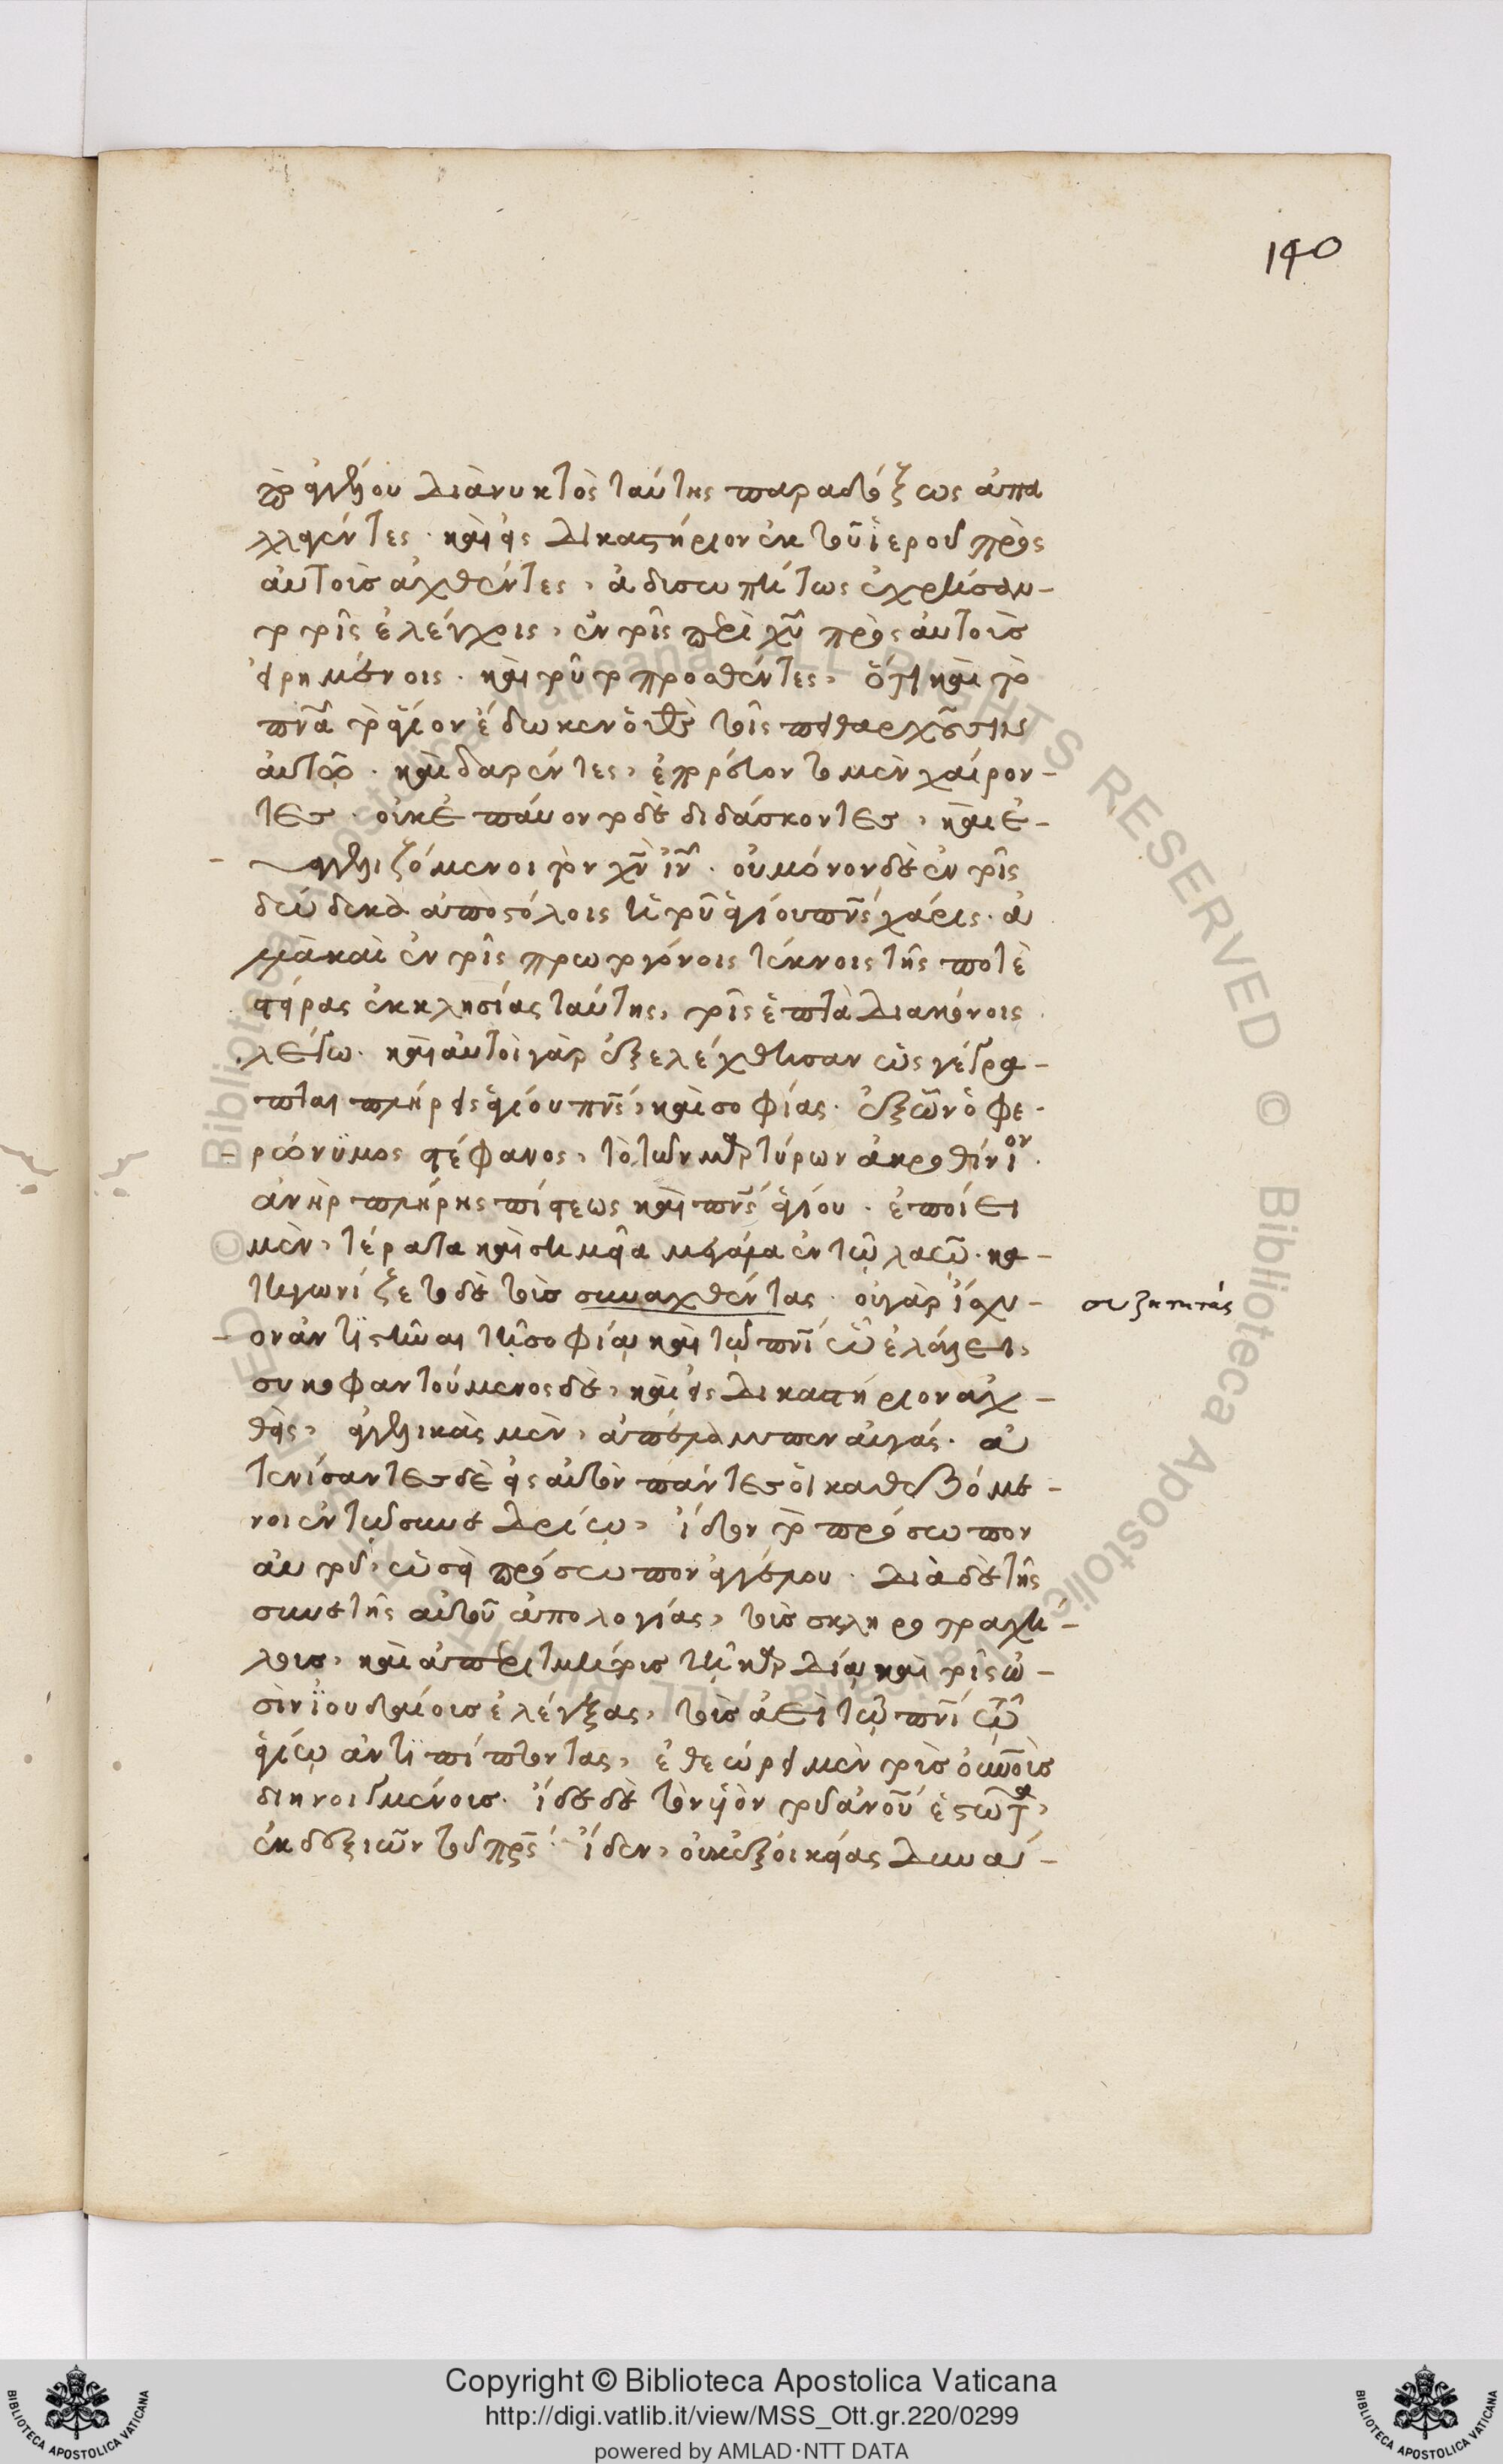 190
παρ' ἀγγέλου διὰ νυκτὸς ταύτης παραδόξως ἀπα
λλαγέντες · καὶ εἰς δικαστήριον ἐκ τοῦ ἱεροῦ πρὸς
αὐτοὺς ἀχθέντες, ἀδισωπήτως ἐχρήσαν-
το τοῖς ἐλέγχοις, ἐν τοῖς περὶ χῦ πρὸς αὐτοὺς
εἰρημένοις · καὶ τοῦτο προσθέντες, ὅτι καὶ τὸ
πνᾶ τὸ ἅγιον ἔδωκεν ὁ θς τοῖς πειθαρχοῦσιν
αὐτῷ · καὶ δαρέντες, ἐπορεύοντο μὲν χαίρον-
τες · οὐκ ἐπαύοντο δὲ διδάσκοντες, καὶ εὐ-
αγγελιζόμενοι τὸν χν ιν · οὐ μόνον δὲ ἐν τοῖς
δώδεκα ἀποστόλοις ἡ τοῦ ἁγίου πνς χάρις · ἀ
λλὰ καὶ ἐν τοῖς πρωτογόνοις τέκνοις τῆς ποτὲ
στείρας ἐκκλησίας ταύτης, τοῖς ἑπτὰ διακόνοις
λέγω · καὶ αὐτοὶ γὰρ ἐξελέχθησαν ὡς γέγρα-
πται πλήρεις ἁγίου πνς, καὶ σοφίας · ἐξ ὧν ὁ φε-
ρώνυμος στέφανος, τὸ τῶν μαρτύρων ἀκροθίνιον ·
ἀνὴρ πλήρης πίστεως καὶ πνς ἁγίου · ἐποίει
μὲν, τέρατα καὶ σημεῖα μεγάλα ἐν τῷ λαῷ · κα-
τηγωνίζετο δὲ τοὺς συναχθέντας · οὐ γὰρ ἴσχυ-
συζητητάς
ον ἀντιστῆναι τῇ σοφίᾳ καὶ τῷ πνι ᾧ ἐλάλει,
συκοφαντούμενος δὲ, καὶ εἰς δικαστήριον ἀχ-
θεὶς, ἀγγελικὰς μὲν, ἀπέλαμπεν αὐγάς · ἀ
τενίσαντες δὲ εἰς αὐτὸν πάντες οἱ καθεζόμε-
νοι ἐν τῷ συνεδρίῳ, ἴδον τὸ πρόσωπον
αὐτοῦ, ὡσεὶ πρόσωπον ἀγγέλου · διὰ δὲ τῆς
συνετῆς αὐτοῦ ἀπολογίας, τοὺς σκληροτραχή-
λους, καὶ ἀπεριτμήτους τῇ καρδίᾳ καὶ τοῖς ὠ-
σὶν ἰουδαίους ἐλέγξας, τοὺς ἀεὶ τῷ πνι τῷ
ἁγίῳ ἀντιπίπτοντας, ἐθεώρει μὲν τοὺς οὐνοὺς
διηνοιγμένους · ἴδε δὲ τὸν υἱὸν τοῦ ἀνοῦ ἑστῶτα,
ἐκ δεξιῶν τοῦ πρς · ἴδεν, οὐκ ἐξ οἰκείας δυνά-
Copyright © Biblioteca Apostolica Vaticana
http://digi.vatlib.it/view/MSS_Ott.gr.220/0299
powered by AMLAD·NTT DATA